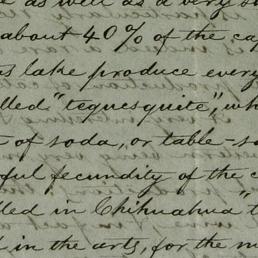 as well as a very s
about 40% of the ca
s lake produce every
lled "tequesquite", wh
t of soda, or table-sa
ful fecundity of the c
lled in Chihuahua "t
d in the arts, for the m